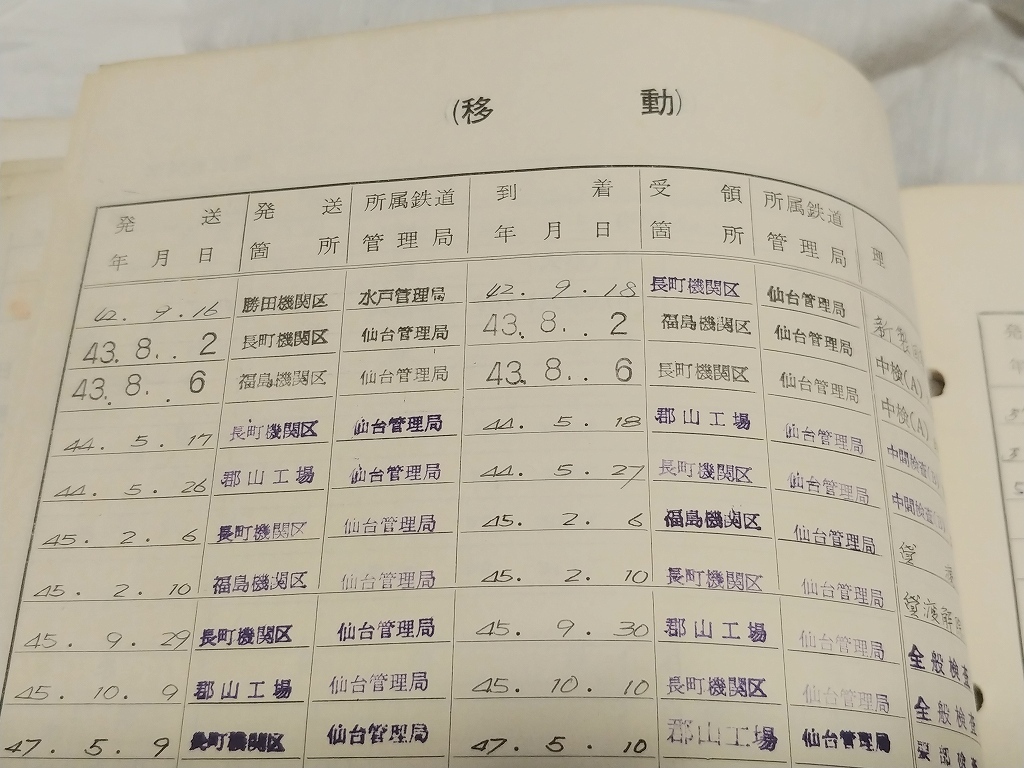 (移 動)
発送年月日 発送箇所 所属鉄道管理局 到着年月日 受領箇所 所属鉄道管理局 理
42.9.16 勝田機関区 水戸管理局 42.9.18 長町機関区 仙台管理局
43.8.2 長町機関区 仙台管理局 43.8.2 福島機関区 仙台管理局 中検(A)
43.8.6 福島機関区 仙台管理局 43.8.6 長町機関区 仙台管理局 中検(A)
44.5.17 長町機関区 仙台管理局 44.5.18 郡山工場 仙台管理局 中間検査
44.5.26 郡山工場 仙台管理局 44.5.27 長町機関区 仙台管理局 中間検査
45.2.6 長町機関区 仙台管理局 45.2.6 福島機関区 仙台管理局
45.2.10 福島機関区 仙台管理局 45.2.10 長町機関区 仙台管理局
45.9.29 長町機関区 仙台管理局 45.9.30 郡山工場 仙台管理局 全般検査
45.10.9 郡山工場 仙台管理局 45.10.10 長町機関区 仙台管理局 全般検査
47.5.9 長町機関区 仙台管理局 47.5.10 郡山工場 仙台管理局
発
年